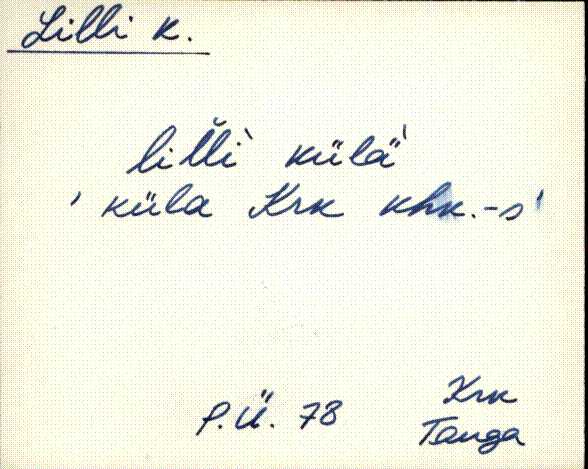 Lilli k.
lil̆lì külä̀
' küla Krk khk.-s'
P.Ü. 78
Krk
Tanga